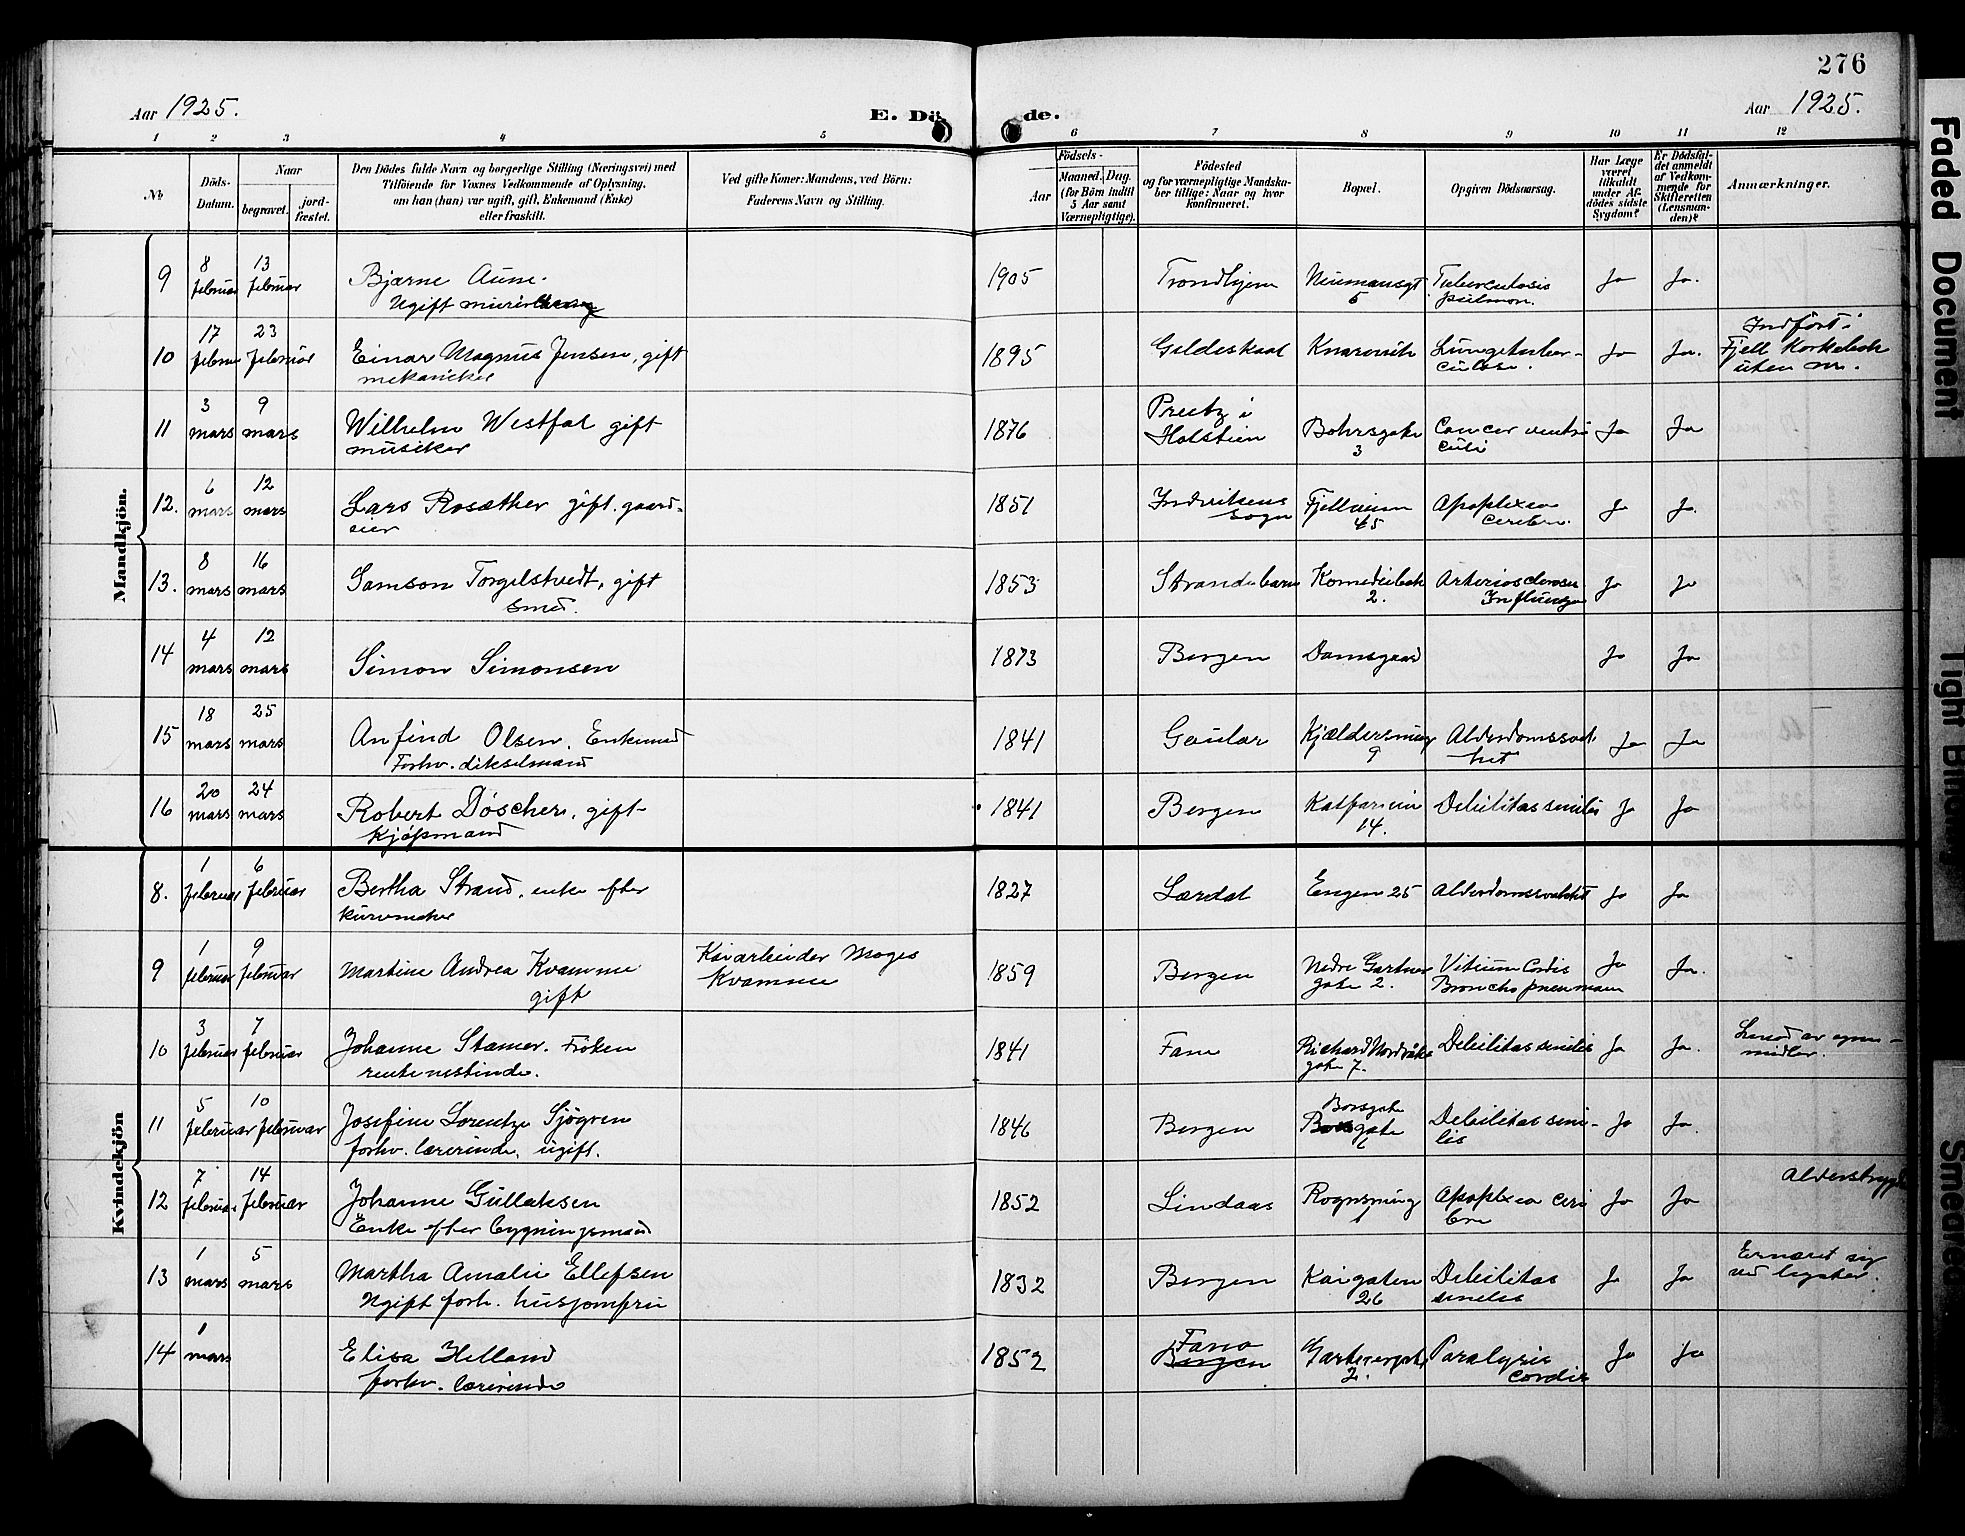 276
Aar 1925.
E. Dö
de.
Aar 1925.
1 2 3 4 5 6 7 8 9 10 11 12
No
Döds-
Datum.
Naar
begravet.
jord-
fæstet.
Den Dödes fulde Navn og borgerlige Stilling (Næringsvei) med
Tilföiende for Voxnes Vedkommende af Oplysning,
om han (hun) var ugift, gift, Enkemand (Enke)
eller fraskilt.
Ved gifte Koner: Mandens, ved Börn:
Faderens Navn og Stilling.
Födsels-
Aar
Maaned. Dag.
(for Börn indtil
5 Aar samt
Værnepligtige).
Födested
og for værnepligtige Mandska-
ber tillige: Naar og hvor
konfirmeret.
Bopæl.
Opgiven Dödsaarsag.
Har Læge
været
tilkaldt
under Af-
dödes sidste
Sygdom?
Er Dödsfal-
det anmeldt
af Vedkom-
mende for
Skifteretten
(Lensman-
den)?
Anmærkninger.
Mandkjön.
9 8 februar 13 februar Bjarne Aune. 1905 Trondhjem Neumansgt 5 Tuberculosis pulmon. Ja Ja.
Ugift
10 17 februar 23 februar Einar Magnus Jensen, gift 1895 Gildeskaal Knarvik Lungetuber- Ja Ja. Indført i
mekaniker culose. Fjell Kirkebok
uten nr.
11 3 mars 9 mars Wilhelm Westfal gift 1876 Preetz i Holstein Bohrsgate 3 Cancer ventri Ja Ja
musiker culi
12. 6 mars 12 mars Lars Rosæther gift. gaard- 1851 Indvikens sogn Fjellveien 45 Apoplexia Ja Ja.
eier cerebri.
13. 8 mars 16 mars Samson Torgilstvedt, gift 1853 Strandebarm Komediebak 2. Ja Ja
smed. Influenza
14 4 mars 12 mars Simon Simonsen 1873 Bergen Damsgaard Ja Ja
15 18 mars 25 mars Anfind Olsen. Enkemand 1841 Gaular Kjældersmug 9 Alderdomssvak- Ja Ja
Forhv. dikselmand het
16 20 mars 24 mars Robert Döscher, gift 1841 Bergen 14. Debilitas senilis Ja Ja
Kjøpmand
Kvindekjön
8. 1 februar 6 februar Bertha Strand. enke efter 1827 Lærdal Engen 25 Alderdomssvakhet Ja Ja
kurvmaker
9 1 februar 9 februar Martine Andrea Kvamme Kaiarbeider Moges 1859 Bergen Nedre Gartner Vitium Cordis Ja Ja.
gift Kvamme gate 2. Bronchopneumoni
10 3 februar 7 februar Johanne Stamer. Frøken 1841 Fane Richard Nordråks Debilitas senilis Ja Ja. Leved av egne
rentenistinde. gate 7. midler.
11 5 februar 10 februar Josefine Lorentze Sjögren 1846 Bergen Borsgate 6 Debilitas seni- Ja Ja.
forhv. lærerinde. ugift. lis
12 7 februar 14 februar Johanne Gullaksen 1852 Lindaas Rognsmug 1 Apoplexia ceri Ja Ja Alderstrygd
Enke efter bygningsmand bre
13 1 mars 5 mars Martha Amalie Ellefsen 1832 Bergen Kaigaten 26 Debilitas Ja Ja Ernæret sig
Ugift forh. husjomfru senilis ved legater.
14 1 mars Elisa Helland 1852 Fana Bergen Gartnergate 2. Paralysis Ja Ja
forhv. lærerinde cordis
Faded Document
Tight Binding
Smeared